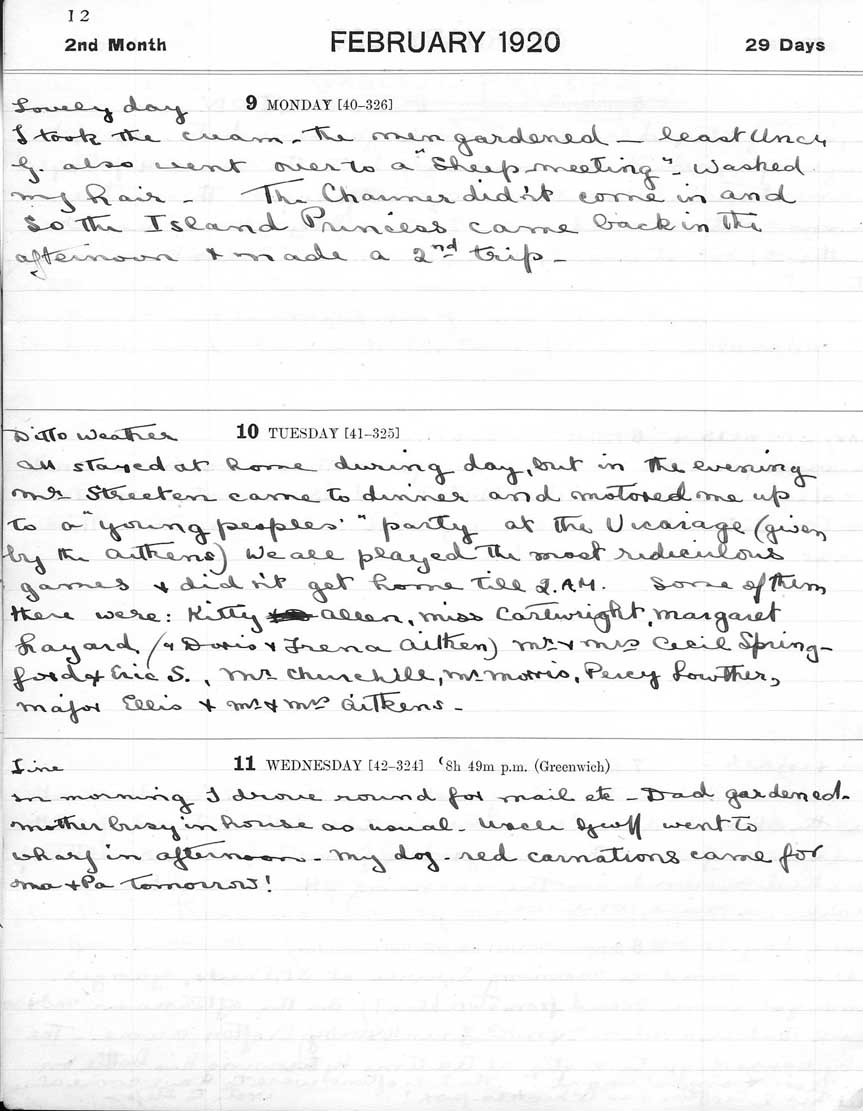 12
2nd Month FEBRUARY 1920 29 Days
Lovely day 9 MONDAY [40-326]
I took the cream - The men gardened — least Uncle
G. also went over to a "Sheep meeting" - Washed
my hair - The Charmer did'nt come in and
so the Island Princess came back in the
afternoon & made a 2nd trip -
Ditto weather 10 TUESDAY [41-325]
All stayed at home during day, but in the evening
Mr Streeten came to dinner and motored me up
to a "young peoples'" party at the Vicarage (given
by the Aitkens) We all played the most ridiculous
games & did'nt get home till 2.A.M. Some of them
there were: Kitty Allen, Miss Cartwright, Margaret
Layard (& Doris & Irena Aitken) Mr & Mrs Cecil Spring-
ford & Eric S., Mr Churchill, Mr Morris, Percy Lowther,
Major Ellis & Mr & Mrs Aitkens -
Fine 11 WEDNESDAY [42-324] ☾8h 49m p.m. (Greenwich)
In morning I drove round for mail etc - Dad gardened -
Mother busy in house as usual - Uncle Geoff went to
wharf in afternoon - My doz. red carnations came for
Ma & Pa tomorrow!